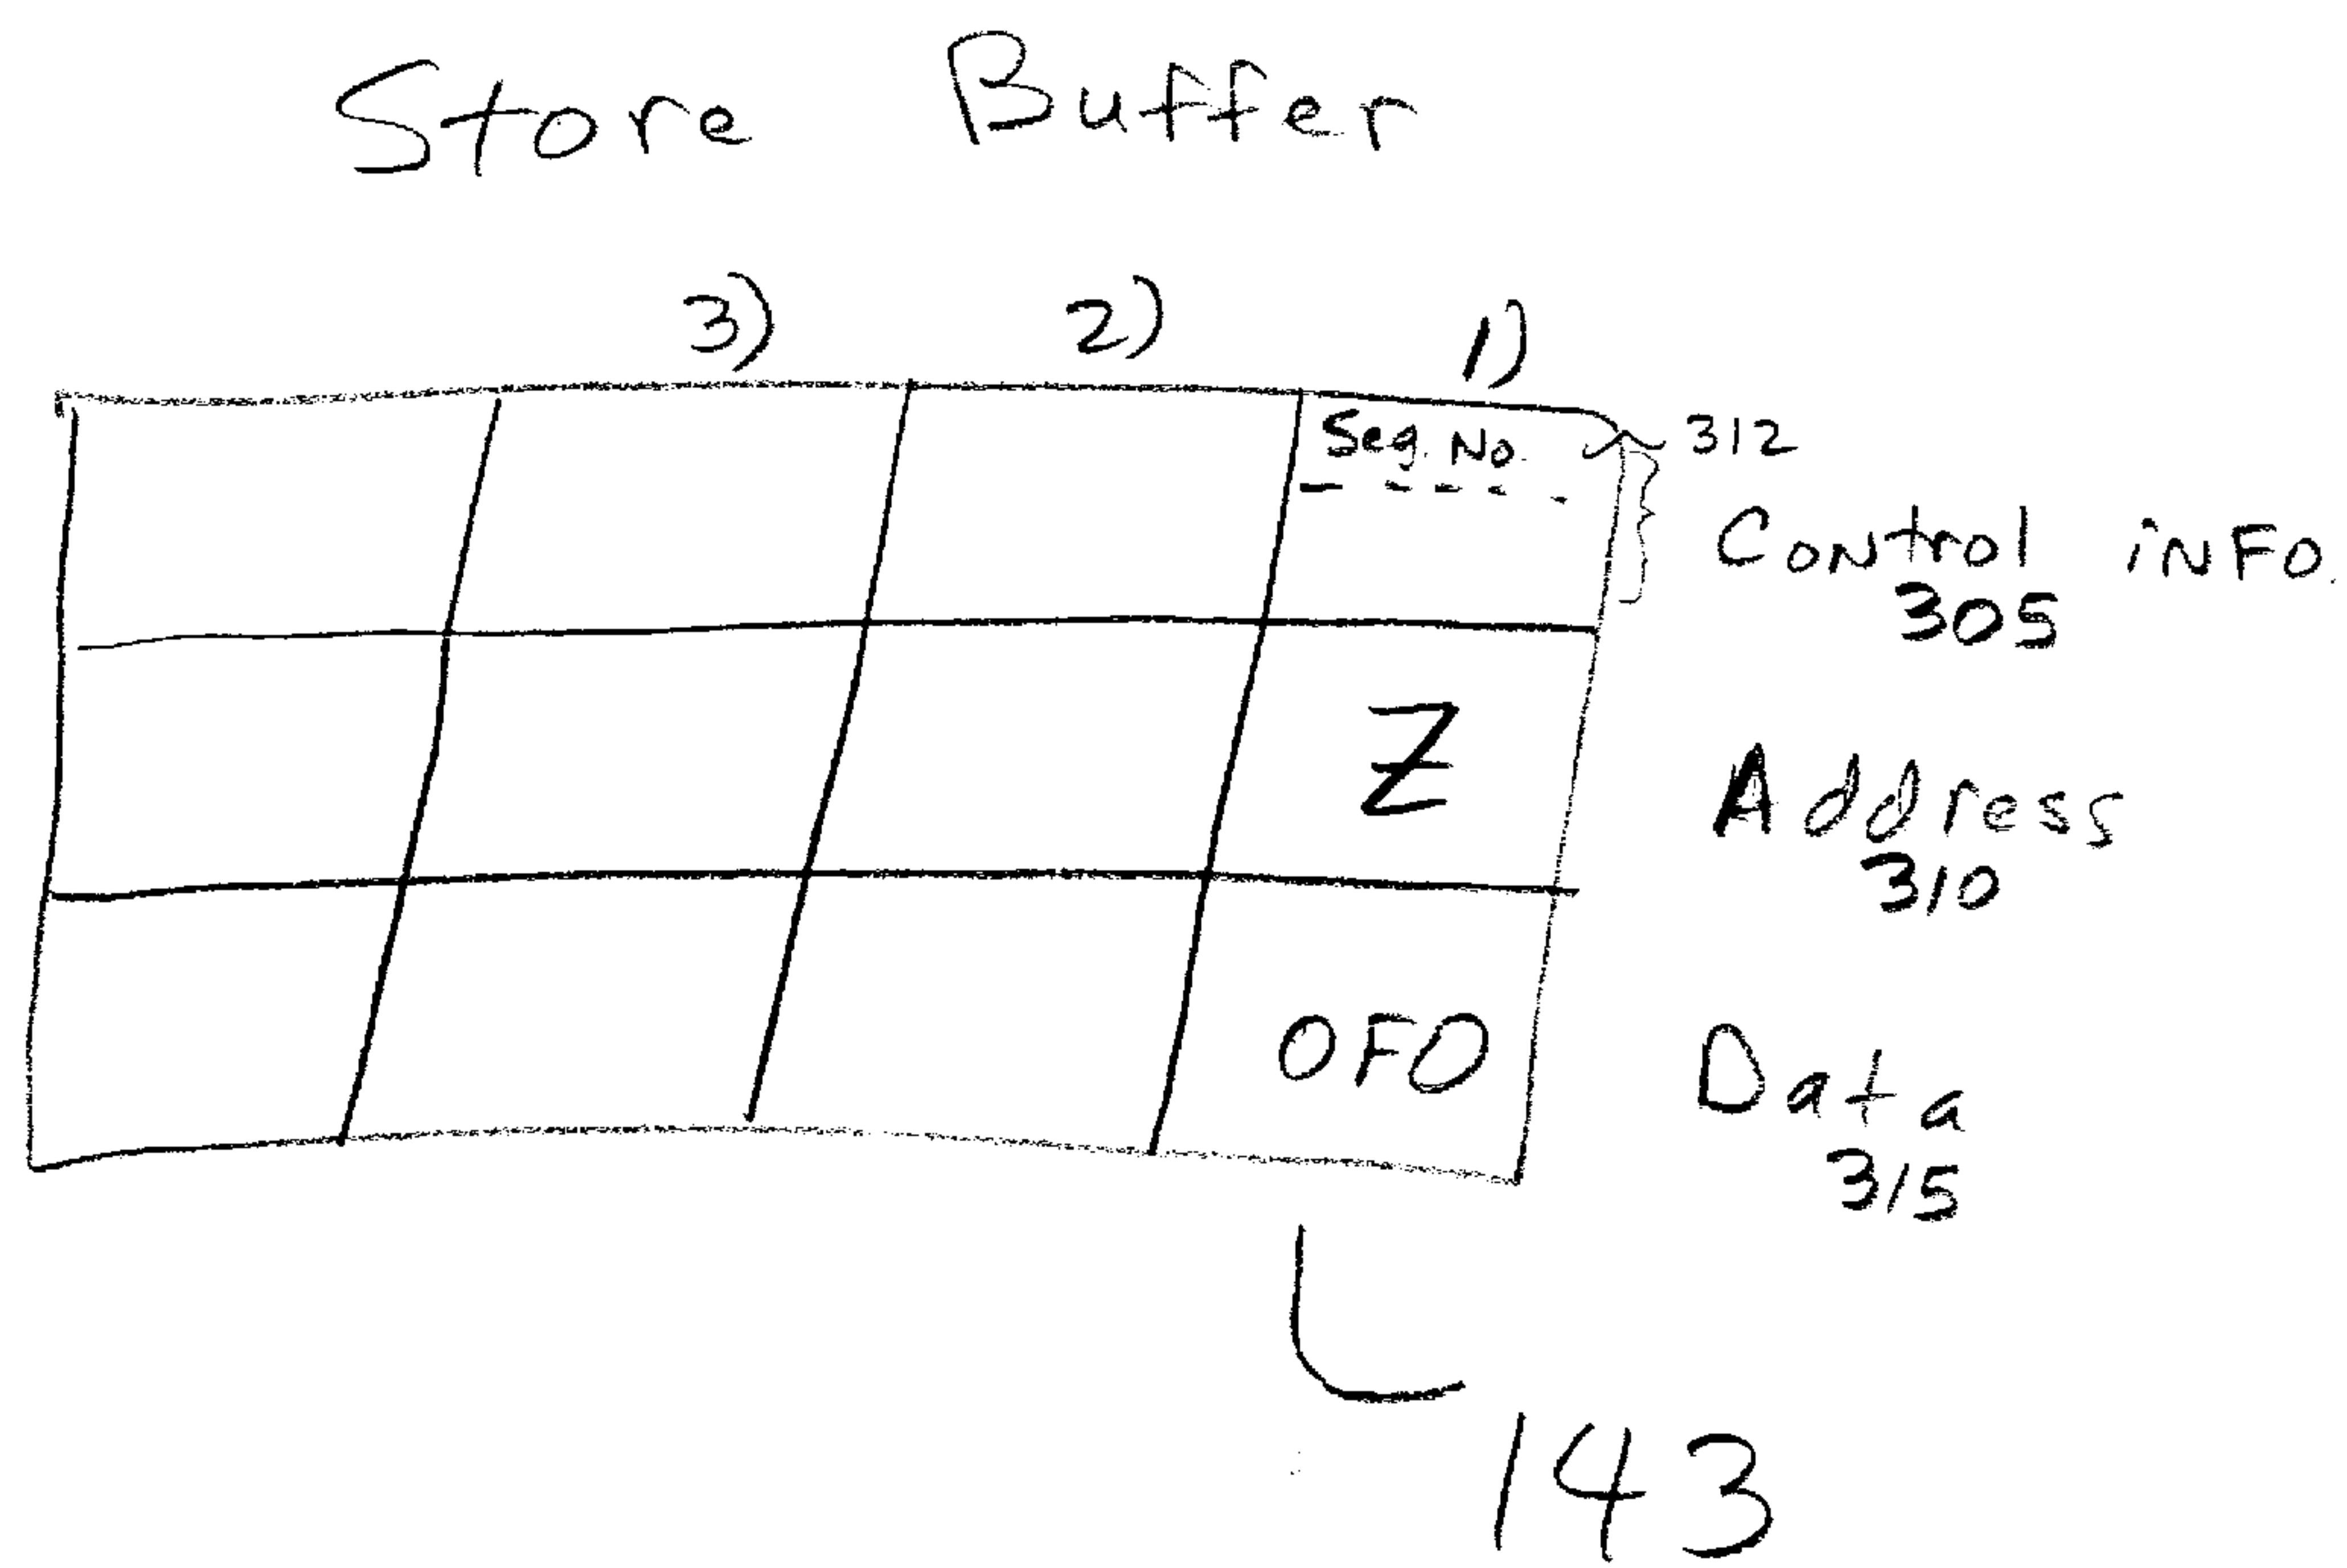 Store Buffer
3) 2) 1)
Seq. No. 312
Control iNFO.
305
Z Address
310
OFO Data
315
143